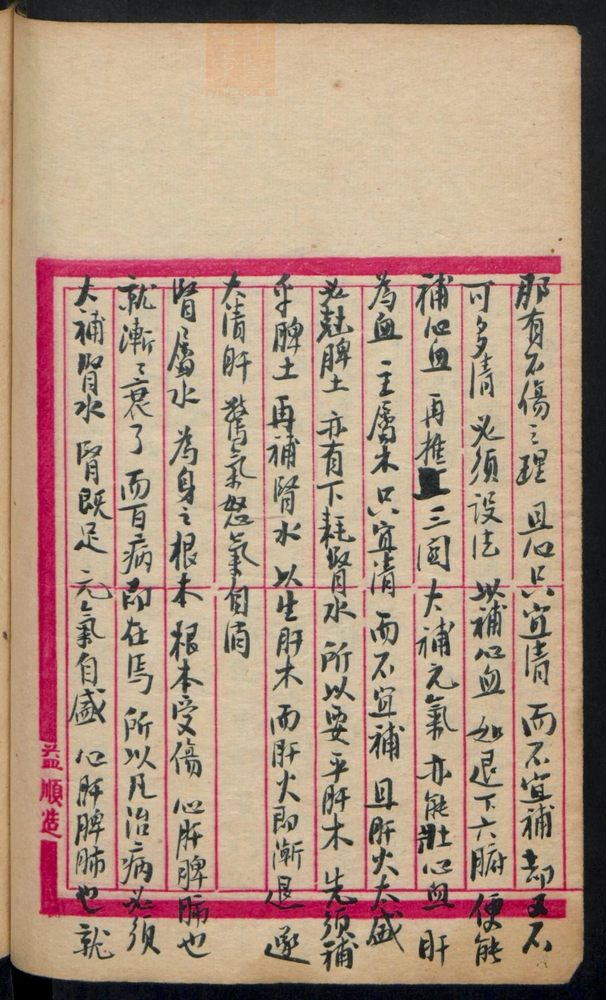 那有不傷之理 且心只宜清 而不宜補 却又不
可多清 必須設法 以補心血 如退下六腑 便能
補心血 再推上三関 大補元氣 亦能壯心血 肝
為血 主屬木 只宜清 而不宜補 且肝火太盛
必尅脾土 亦有下耗腎水 所以要平肝木 先須補
乎脾土 再補腎水 以生肝木 而肝火即漸退 遂
大清肝 驚氣怒氣自消
腎屬水 為身之根本 根本受傷 心肝脾肺也
就漸々衰了 而百病即在焉 所以凡治病必須
大補腎水 腎既足 元氣自盛 心肝脾肺也就
益順造